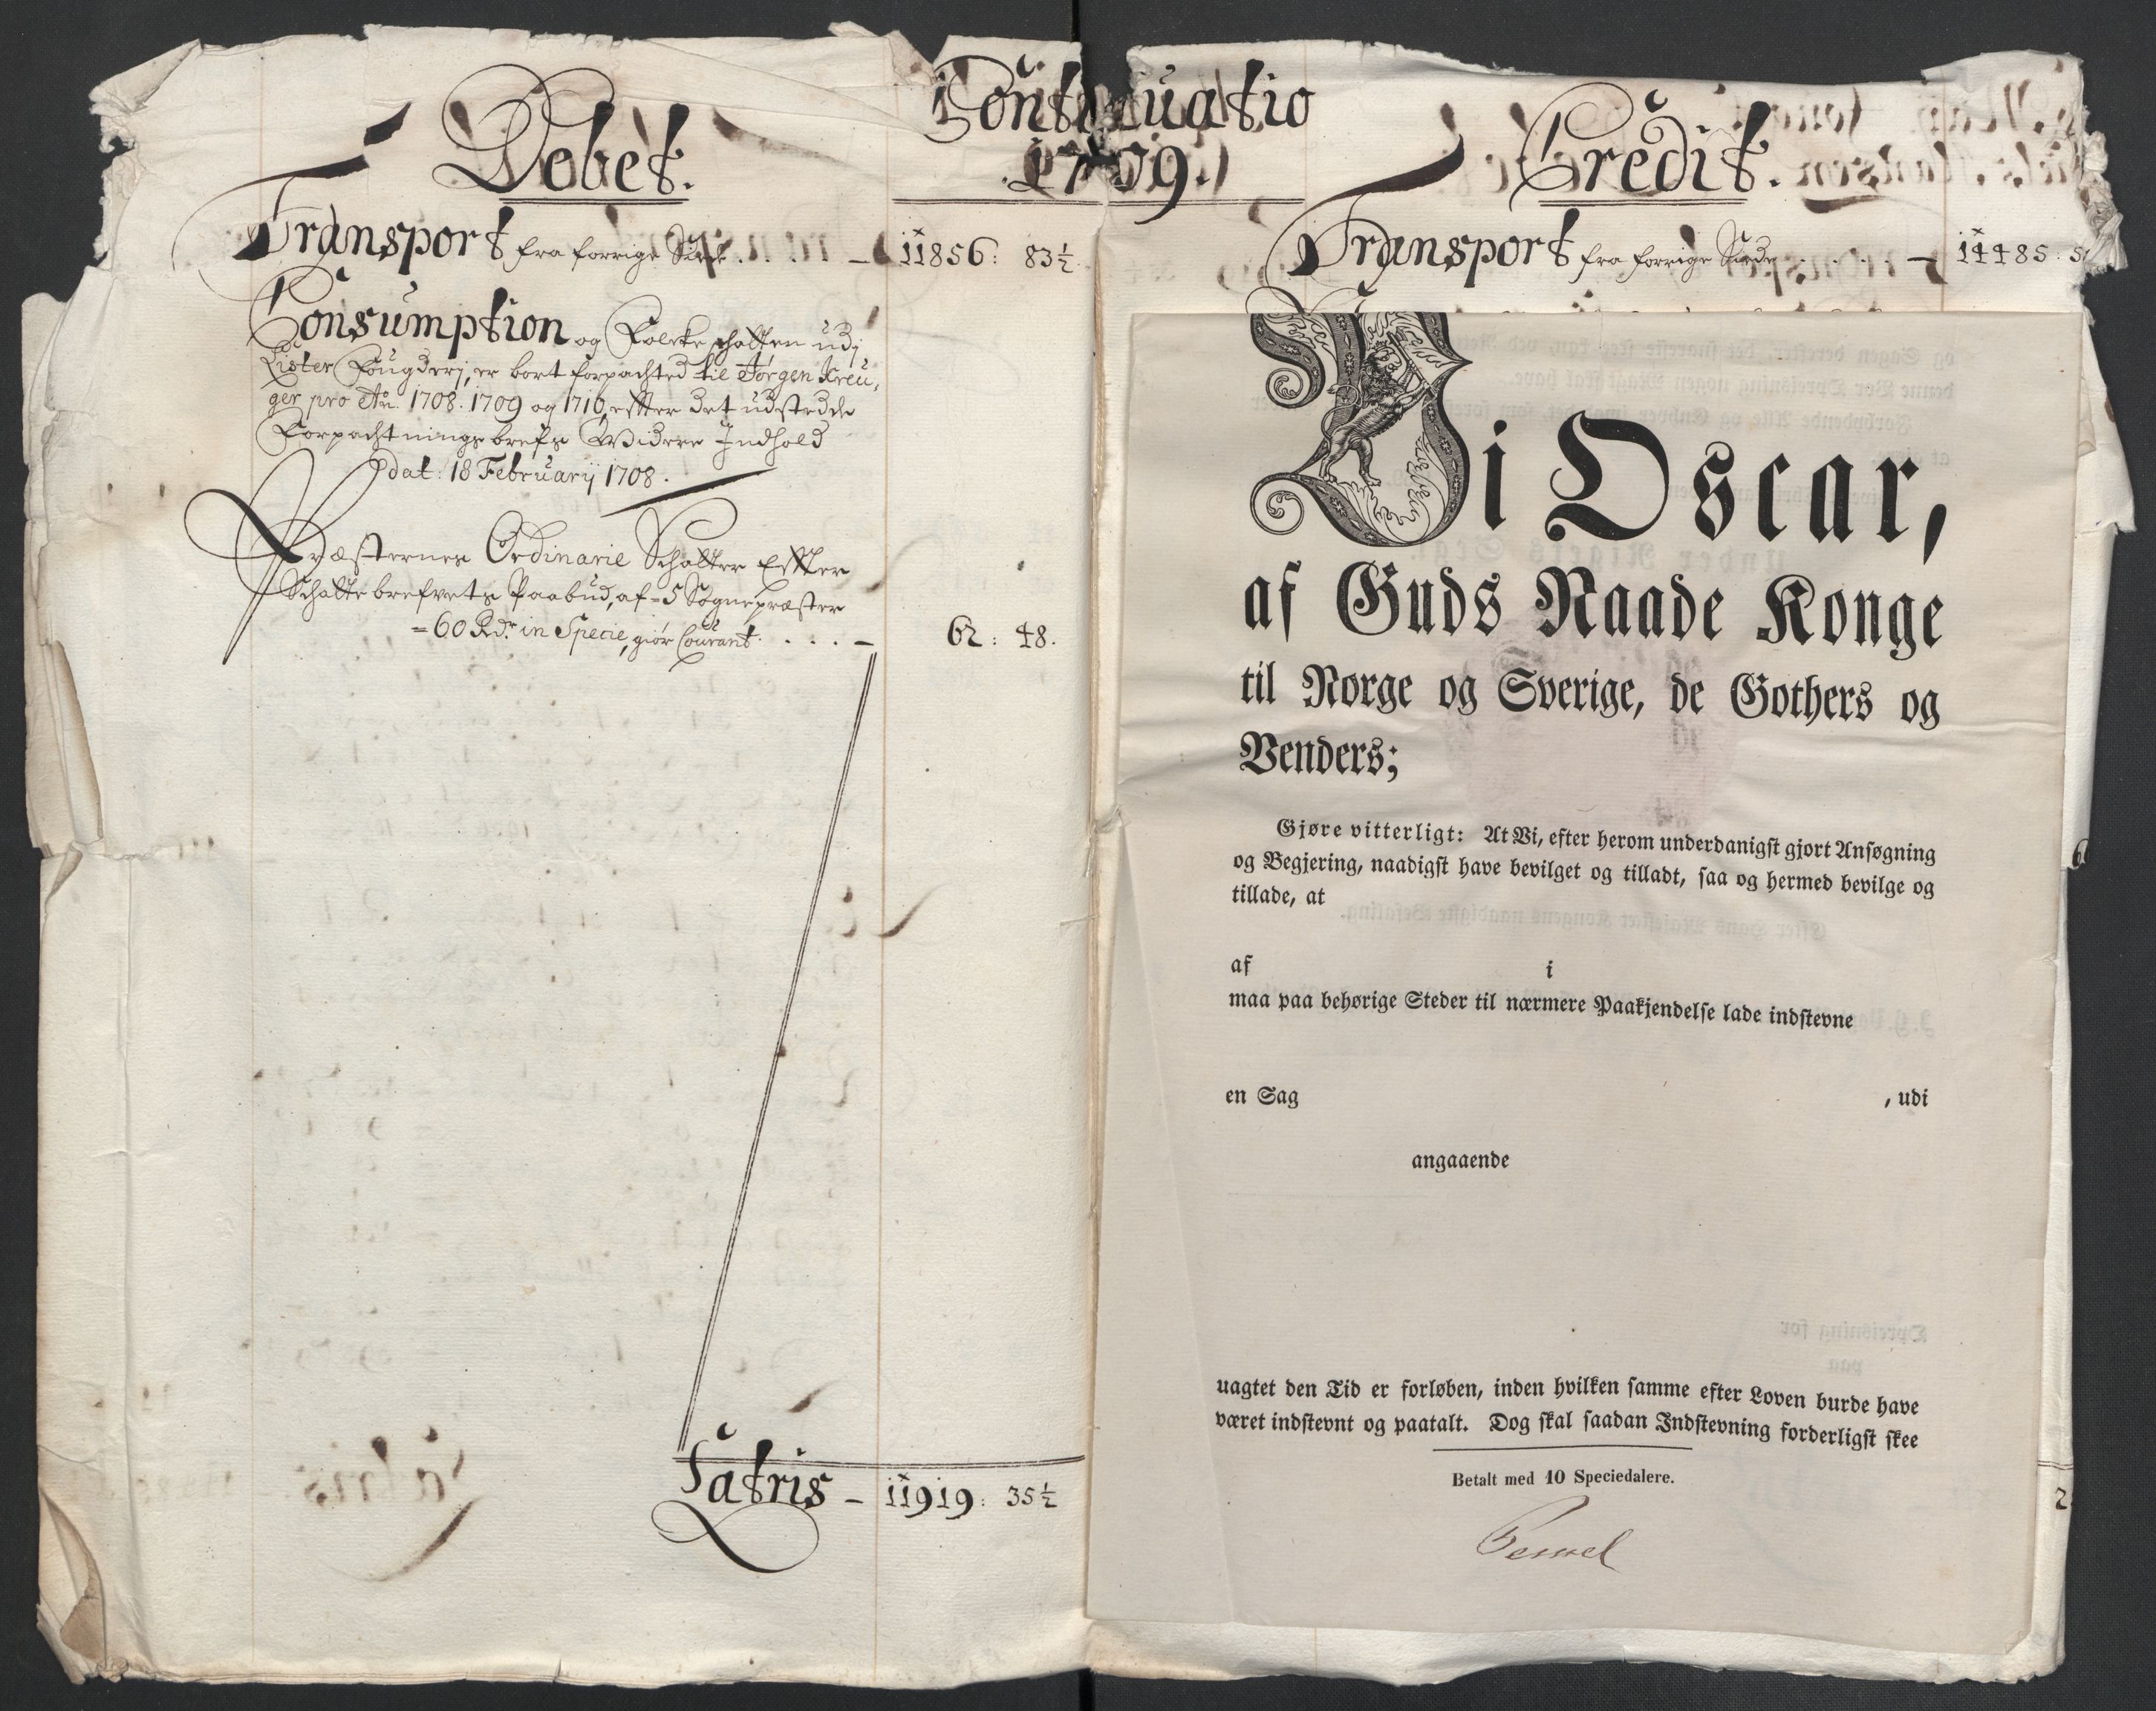 Continuatio
1709.
Debet.
Transport fra forrige Siide . . . — 11856: 83½
Consumption og Folcke schatten udj
Lister Fougderj, er bort forpachted til Jørgen Kreu,
ger pro Ao. 1708. 1709 og 1710, effter det udstedde
Forpachtnings brefs Widere Indhold
dat: 18 Februarij 1708.
Præsternes Ordinarie Schatter Effter
Schatte brefvets Paabud, af = 5 Sognepræster
= 60 Rdr. in Specie, giør Courant . . . . — 62: 48.
Latris — 11919: 35½
Credit.
Transport fra forrige Siide . . . . — 11485: 5
Vi Oscar,
af Guds Naade Konge
til Norge og Sverige, de Gothers og
Venders;
Gjøre vitterligt: At Vi, efter herom underdanigst gjort Ansøgning
og Begjering, naadigst have bevilget og tilladt, saa og hermed bevilge og
tillade, at
af i
maa paa behørige Steder til nærmere Paakjendelse lade indstevne
en Sag , udi
angaaende
uagtet den Tid er forløben, inden hvilken samme efter Loven burde have
været indstevnt og paatalt. Dog skal saadan Indstevning forderligst skee
Betalt med 10 Speciedalere.